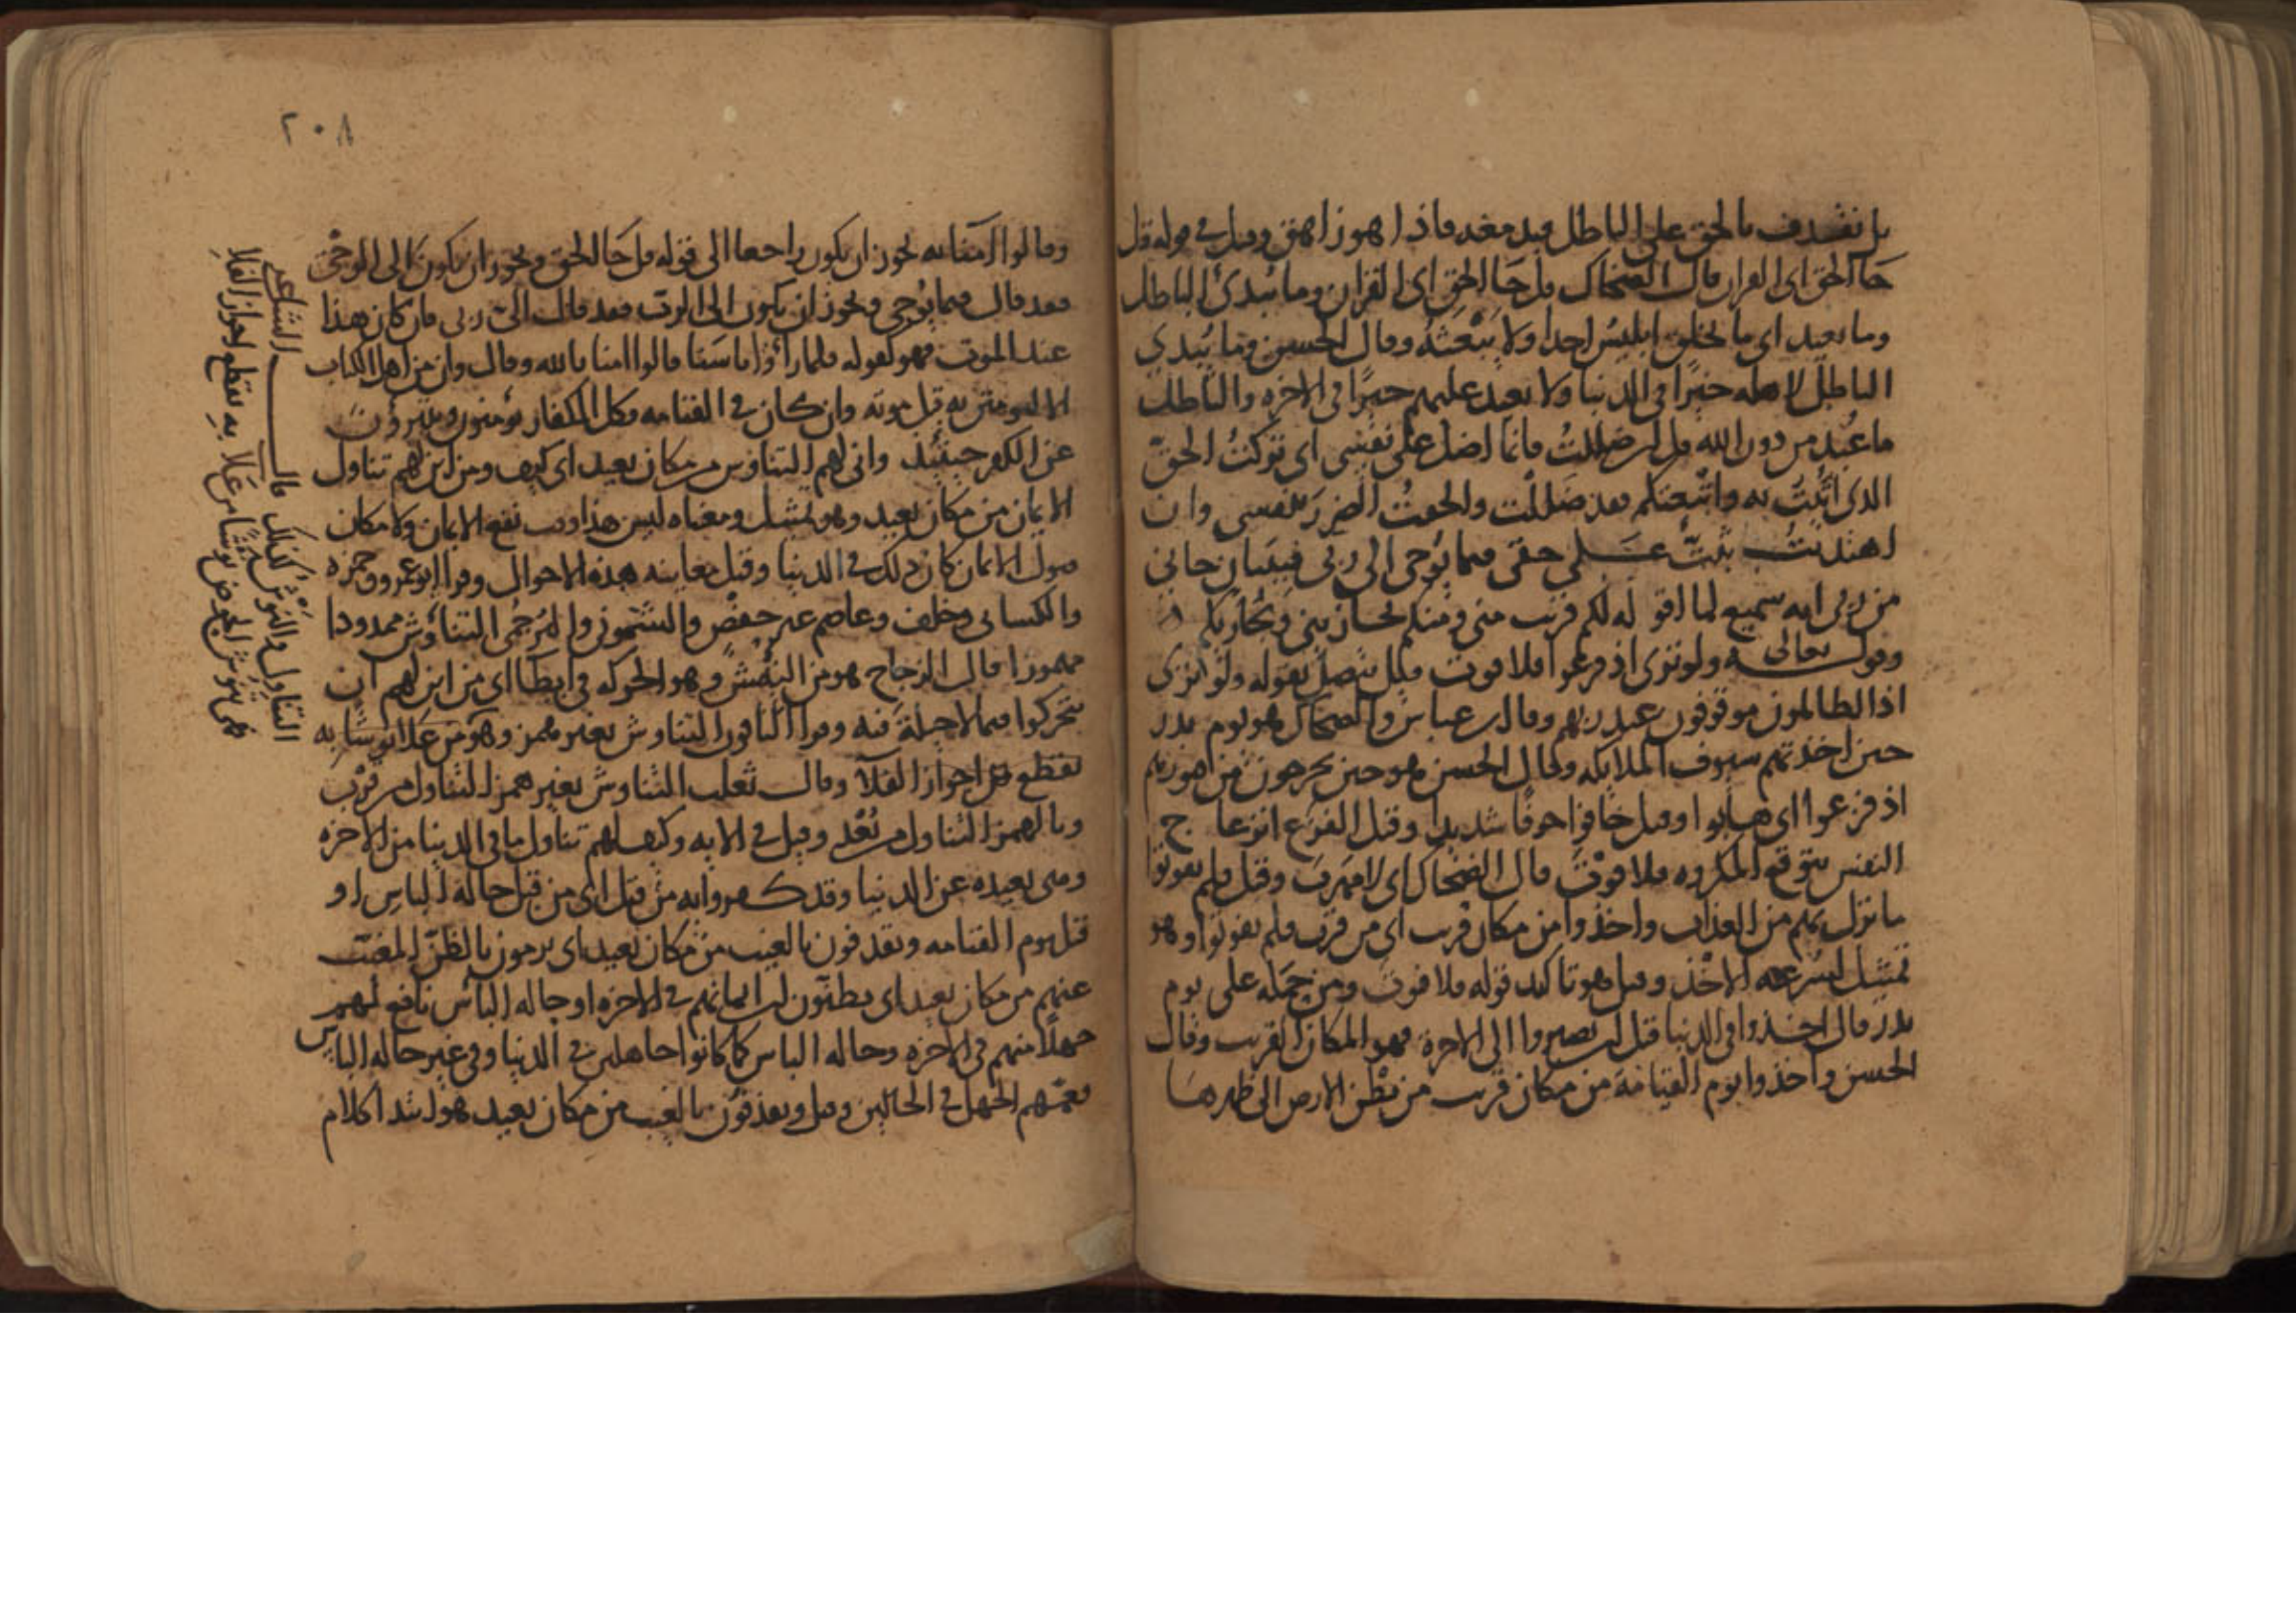 بل نقذف بالحق على الباطل فيدمغه فاذا هو زاهق وقيل في قوله قل
جا الحق اى القران قال الضحاك قل جا الحق اى القران وما يبدئ الباطل
وما يعيد اى ما يخلق ابليس احدا ولا يبعثه وقال الحسن وما يبدي
الباطل لاهله خيرا في الدنيا ولا يعيد عليهم خيرا في الاخرة والباطل
ما عبد من دون الله قل ان ضللت فانما اضل على نفسي اى ان تركت الحق
الذى اتيت به واتبعتكم فقد ضللت والحقت الضرر بنفسي وان
اهتديت ثبت على حقي فبما يوحى الى ربى فببيان جاني
من ربى انه سميع لما اقوله لكم قريب منى ومنكم
وقوله تعالى ولو ترى اذ فزعوا فلا فوت قيل يتصل بقوله ولو ترى
اذ الظالمون موقوفون عند ربهم وقال ابن عباس والضحاك هو يوم بدر
حين اخذتهم سيوف الملايكه وقال الحسن هو حين يخرجون من قبورهم
اذ فزعوا اى هابوا وقيل خافوا خوفا شديدا وقيل الفزع انزعاج
النفس بتوقع المكروه فلا فوت قال الضحاك اى لا مهرب وقيل فلم يفوتوا
ما نزل بهم من العذاب واخذوا من مكان قريب اى من قرب فلم يفوتوا وهو
تمثيل لسرعه الاخذ وقيل هو تاكيد قوله فلا فوت ومن حمله على يوم
بدر قال اخذوا في الدنيا قبل ان يصيروا الى الاخرة فهو المكان القريب وقال
الحسن واخذوا يوم القيامة من مكان قريب من بطن الارض الى ظهرها
٢٠٨
وقالوا آمنا به يجوز ان يكون راجعا الى قوله قل جا الحق ويجوز ان يكون الى الوحى
فقد قال فبما يوحي ويجوز ان يكون الى الرب فقد قال الى ربى فان كان هذا
عند الموت فهو كقوله فلما راوا باسنا قالوا امنا بالله وقال وان من اهل الكتاب
الا ليومنن به قبل موته وان كان في القيامه فكل الكفار يومنون ويتبرؤن
عن الكفر حينئذ وانى لهم التناوش من مكان بعيد اى كيف ومن اين لهم تناول
الايمان من مكان بعيد وهو تمثيل ومعناه ليس هذا وقت نفع الايمان ولا مكان
قبول الايمان كان ذلك في الدنيا وقبل معاينه هذه الاحوال وقرا ابو عمرو وحمزه
والكسائى وخلف وعاصم غير حفص والشموني والبرجمي التناؤش ممدودا
مهموزا قال الزجاج هو من النئيش وهو الحركه في ابطا اى من اين لهم ان
يتحركوا فيما لا حيلة فيه وقرا الباقون التناوش بغير همز وهو من علا نوشا به
تقطع اجواز الفلا وقال ثعلب التناوش بغير همز التناول من قرب
وبالهمز التناول من بعد وقيل في الايه وكيف لهم تناول ما في الدنيا من الاخره
ومى بعيده عن الدنيا وقد كفروا به من قبل اى من قبل حاله الباس او
قبل يوم القيامه ويقذفون بالغيب من مكان بعيد اى يرمون بالظن المغيب
عنهم من مكان بعيد اى يظنون ان ايمانهم في الاخره او حاله الباس نافع لهم
جهلا منهم في الاخره وحاله الباس كما كانوا جاهلين في الدنيا وفي غير حاله الباس
فعمهم الجهل في الحالين وقيل ويقذفون بالغيب من مكان بعيد هو ابتدا كلام
التناول والنوش كذلك قال الشاعر
فهى تنوش الحوض نوشا من علا به تقطع اجواز الفلا